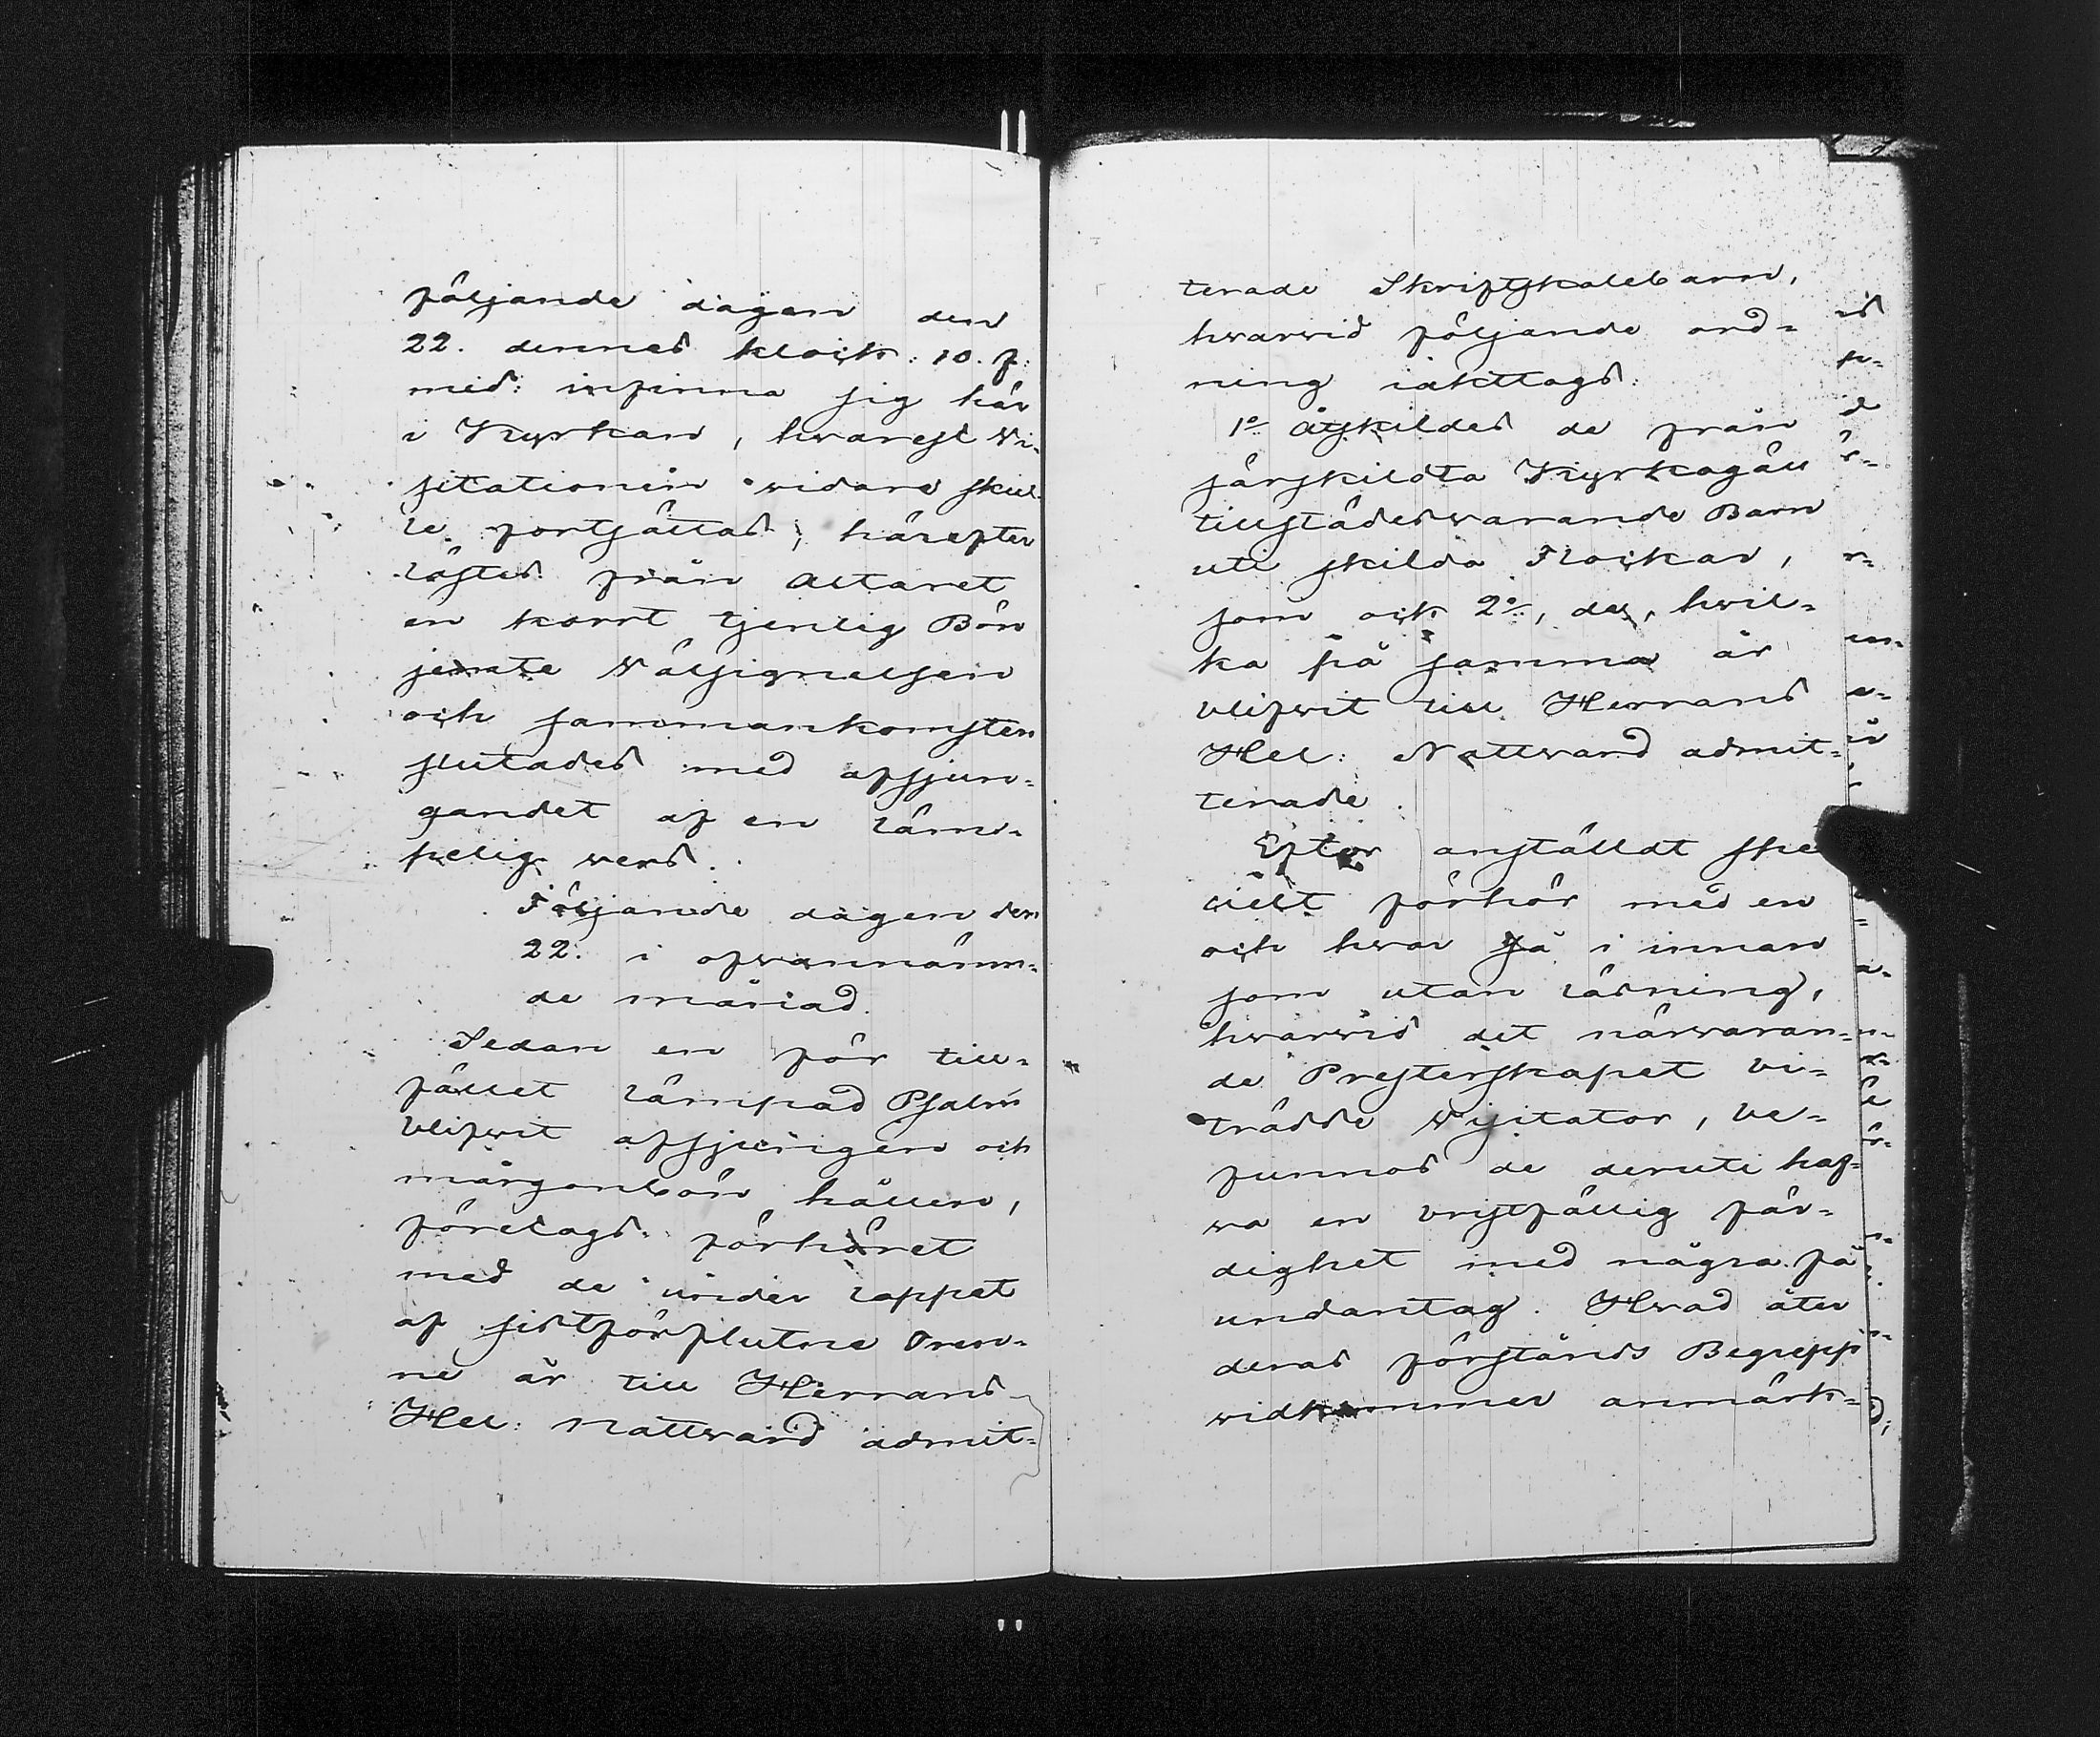 följande dagen den
22. dennes klock: 10. f:
mid: infinna sig här
i Kyrkan, hwarest Wi-
sitationen widare skul-
le fortsättas; härefter
lästes från Altaret
en kort tjenlig Bön
jemte Wälsignelsen
och sammankomsten
slutades med afsjun-
gandet af en läm-
pelig wers.
Följande dagen den
22. i ofwannämn-
de månad.
Sedan en för till-
fället lämpad Psalm
blifwit afsjungen och
mårgonbön hållen,
företogs förhöret
med de under loppet
af sistförflutne tren-
ne år till Herrans
Hel: Nattward admit-
terade Skriftskolebarn,
hwarwid följande ord-
ning iakttogs:
1o åtskildes de från
särskildta Kyrkogäll
tillstädeswarande Barn
uti skilda Flockar,
som ock 2o, de, hwil-
ka på samma år
blifwit till Herrans
Hel: Nattward admit-
terade.
Efter anställdt spe
ciélt förhör med en
och hwar så i innan
som utan läsning,
hwarwid det närwaran-
de Presterskapet bi-
trädde Wisitator, be-
funnos de deruti haf-
wa en bristfällig fär-
dighet med några få
undantag. Hwad åter
deras förstånds Begrepp
widkommer anmärk-